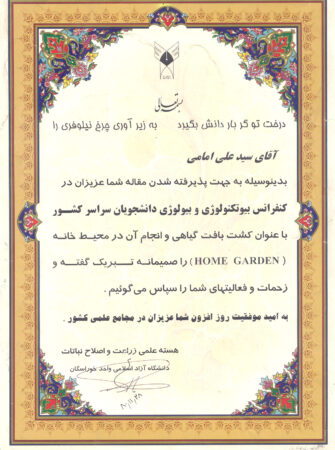 بسمه تعالی
درخت تو گر بار دانش بگیرد به زیر آوری چرخ نیلوفری را
آقای سید علی امامی
بدینوسیله به جهت پذیرفته شدن مقاله شما عزیزان در
کنفرانس بیوتکنولوژی و بیولوژی دانشجویان سراسر کشور
با عنوان کشت بافت گیاهی و انجام آن در محیط خانه
(HOME GARDEN) را صمیمانه تبریک گفته و
زحمات و فعالیتهای شما را سپاس می‌گوئیم .
به امید موفقیت روز افزون شما عزیزان در مجامع علمی کشور .
هسته علمی زراعت و اصلاح نباتات
دانشگاه آزاد اسلامی واحد خوراسگان